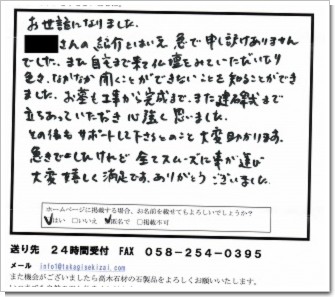 お世話になりました。
さんの紹介とはいえ急で申し訳ありません
でした。また自宅まで来て仏壇をみていただいたり
色々、なかなか聞くことができないことを知ることができ
ました。お墓も工事から完成まで、また建碑式まで
立ちあっていただき心強く思いました。
その後もサポートして下さるとのこと大変助かります。
急ぎでしたけれど全てスムーズに事が運び
大変嬉しく満足です。ありがとうございました。
ホームページに掲載する場合、お名前を載せてもよろしいでしょうか?
はい □いいえ 匿名で □掲載不可
送り先 24時間受付 FAX 058-254-0395
メール info1@takagisekizai.com
また機会がございましたら高木石材の石製品をよろしくお願いいたします。